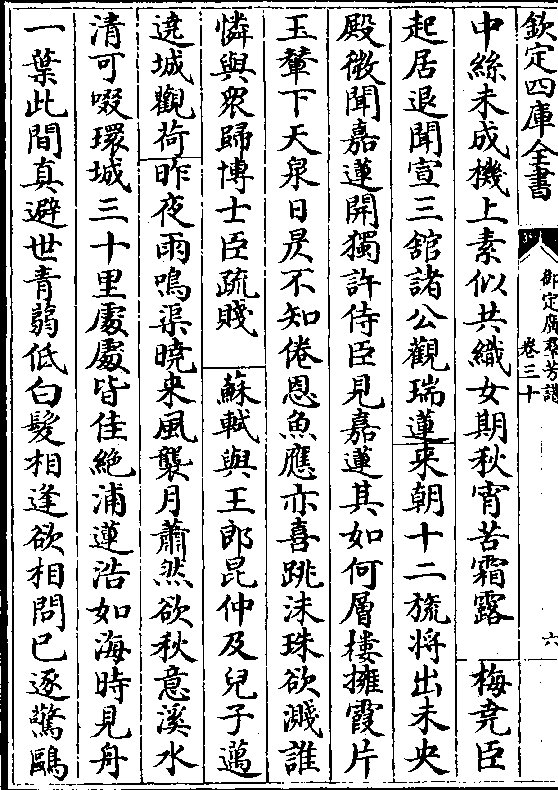 欽定四庫全書
御定廣羣芳譜
卷三十
六
中絲未成機上素似共織女期秋宵苦霜露　梅堯臣
起居退聞宣三舘諸公觀瑞蓮来朝十二旒將出未央
殿微聞嘉蓮開獨許侍臣見嘉蓮其如何層樓擁霞片
玉輦下天泉日昃不知倦恩魚應亦喜跳沫珠欲濺誰
憐與衆歸博士臣疏賤　蘇軾與王郎昆仲及兒子邁
遶城觀荷昨夜雨鳴渠曉来風襲月蕭然欲秋意溪水
清可啜環城三十里處處皆佳絶浦蓮浩如海時見舟
一葉此間真避世青蒻低白髮相逢欲相問已逐驚鷗